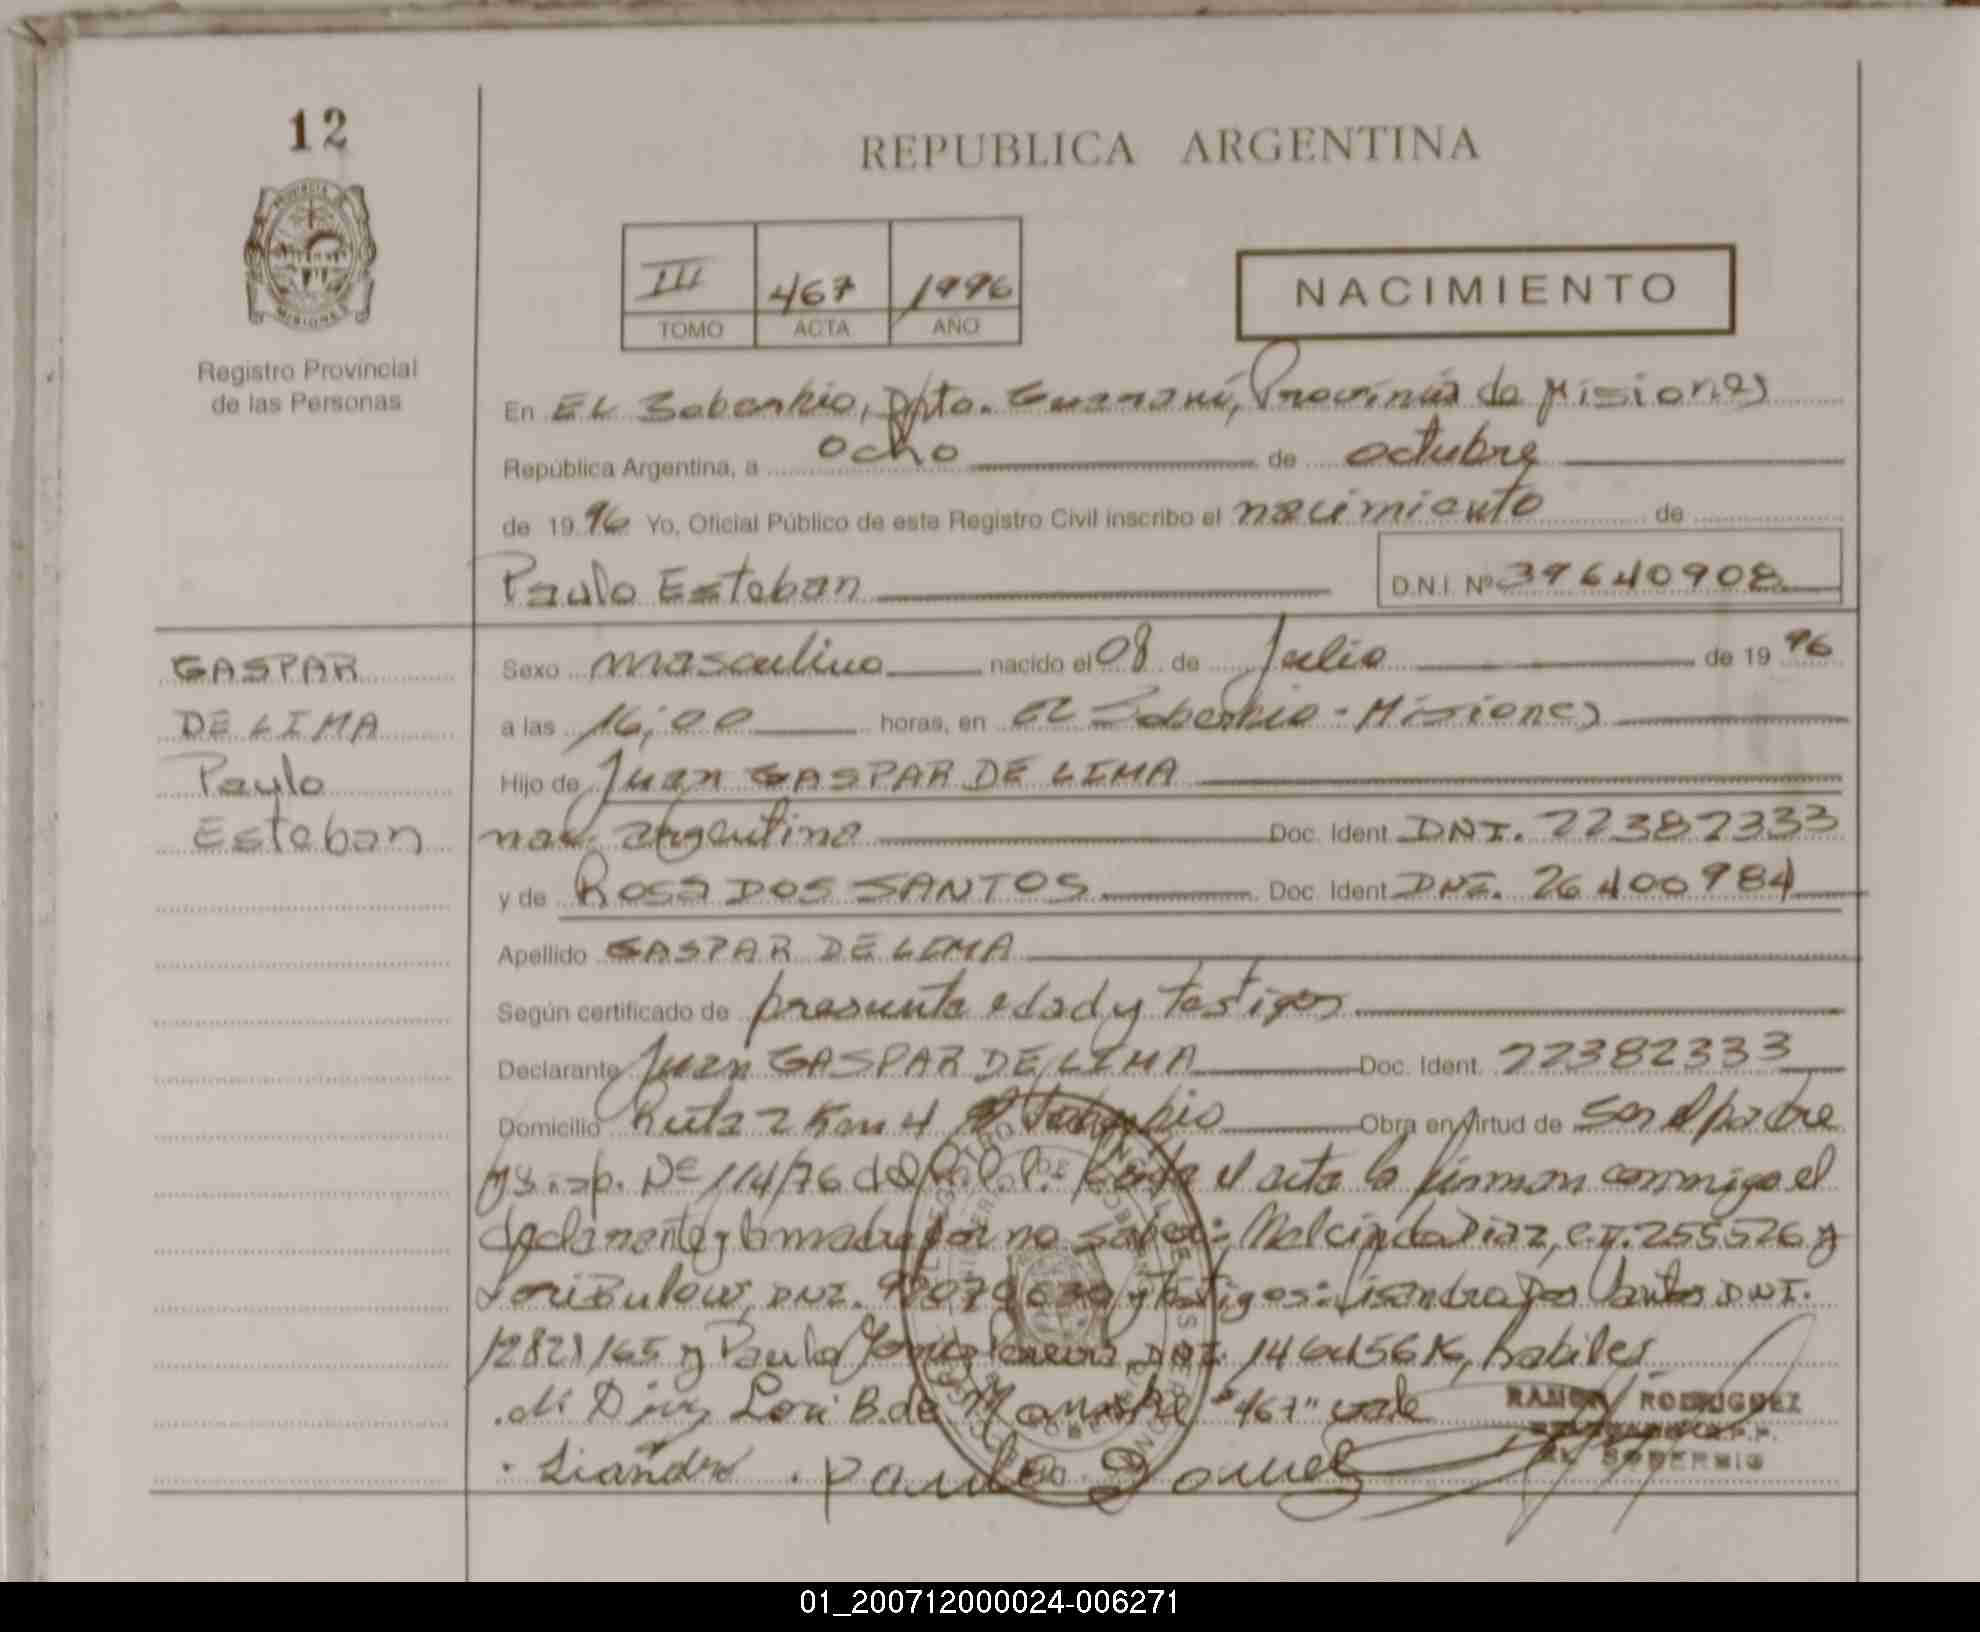 12
REPUBLICA ARGENTINA
III 467 1996
TOMO ACTA AÑO
NACIMIENTO
Registro Provincial
de las Personas
En EL Soberbio, Dpto. Guaraní, Provincia de Misiones
República Argentina, a ocho de octubre
de 1996 Yo, Oficial Público de este Registro Civil inscribo el nacimiento de
Paulo Esteban D.N.I. Nº 39640908
GASPAR
DE LIMA
Paulo
Esteban
Sexo masculino nacido el 08 de Julio de 1996
a las 16,00 horas, en El Soberbio - Misiones
Hijo de Juan GASPAR DE LIMA
nac. argentina Doc. Ident. DNI. 22382333
y de Rosa DOS SANTOS Doc. Ident. DNI. 26400984
Apellido GASPAR DE LIMA
Según certificado de presunta edad y testigos
Declarante Juan GASPAR DE LIMA Doc. Ident. 22382333
Domicilio Ruta 2 Km 4 El Soberbio Obra en virtud de ser el padre
y Nº 114/96 del el acta la firman conmigo el
declarante y la madre por no saber: Díaz, C.I. 255526 y
Lori Bulow, DNI. y testigos: Lisandro Dos Santos DNI.
y Paulo DNI. habiles
Lori B. de "467" vale
RAMON RODRIGUEZ
EL SOBERBIO
Lisandro Paulo Gomez
01_200712000024-006271